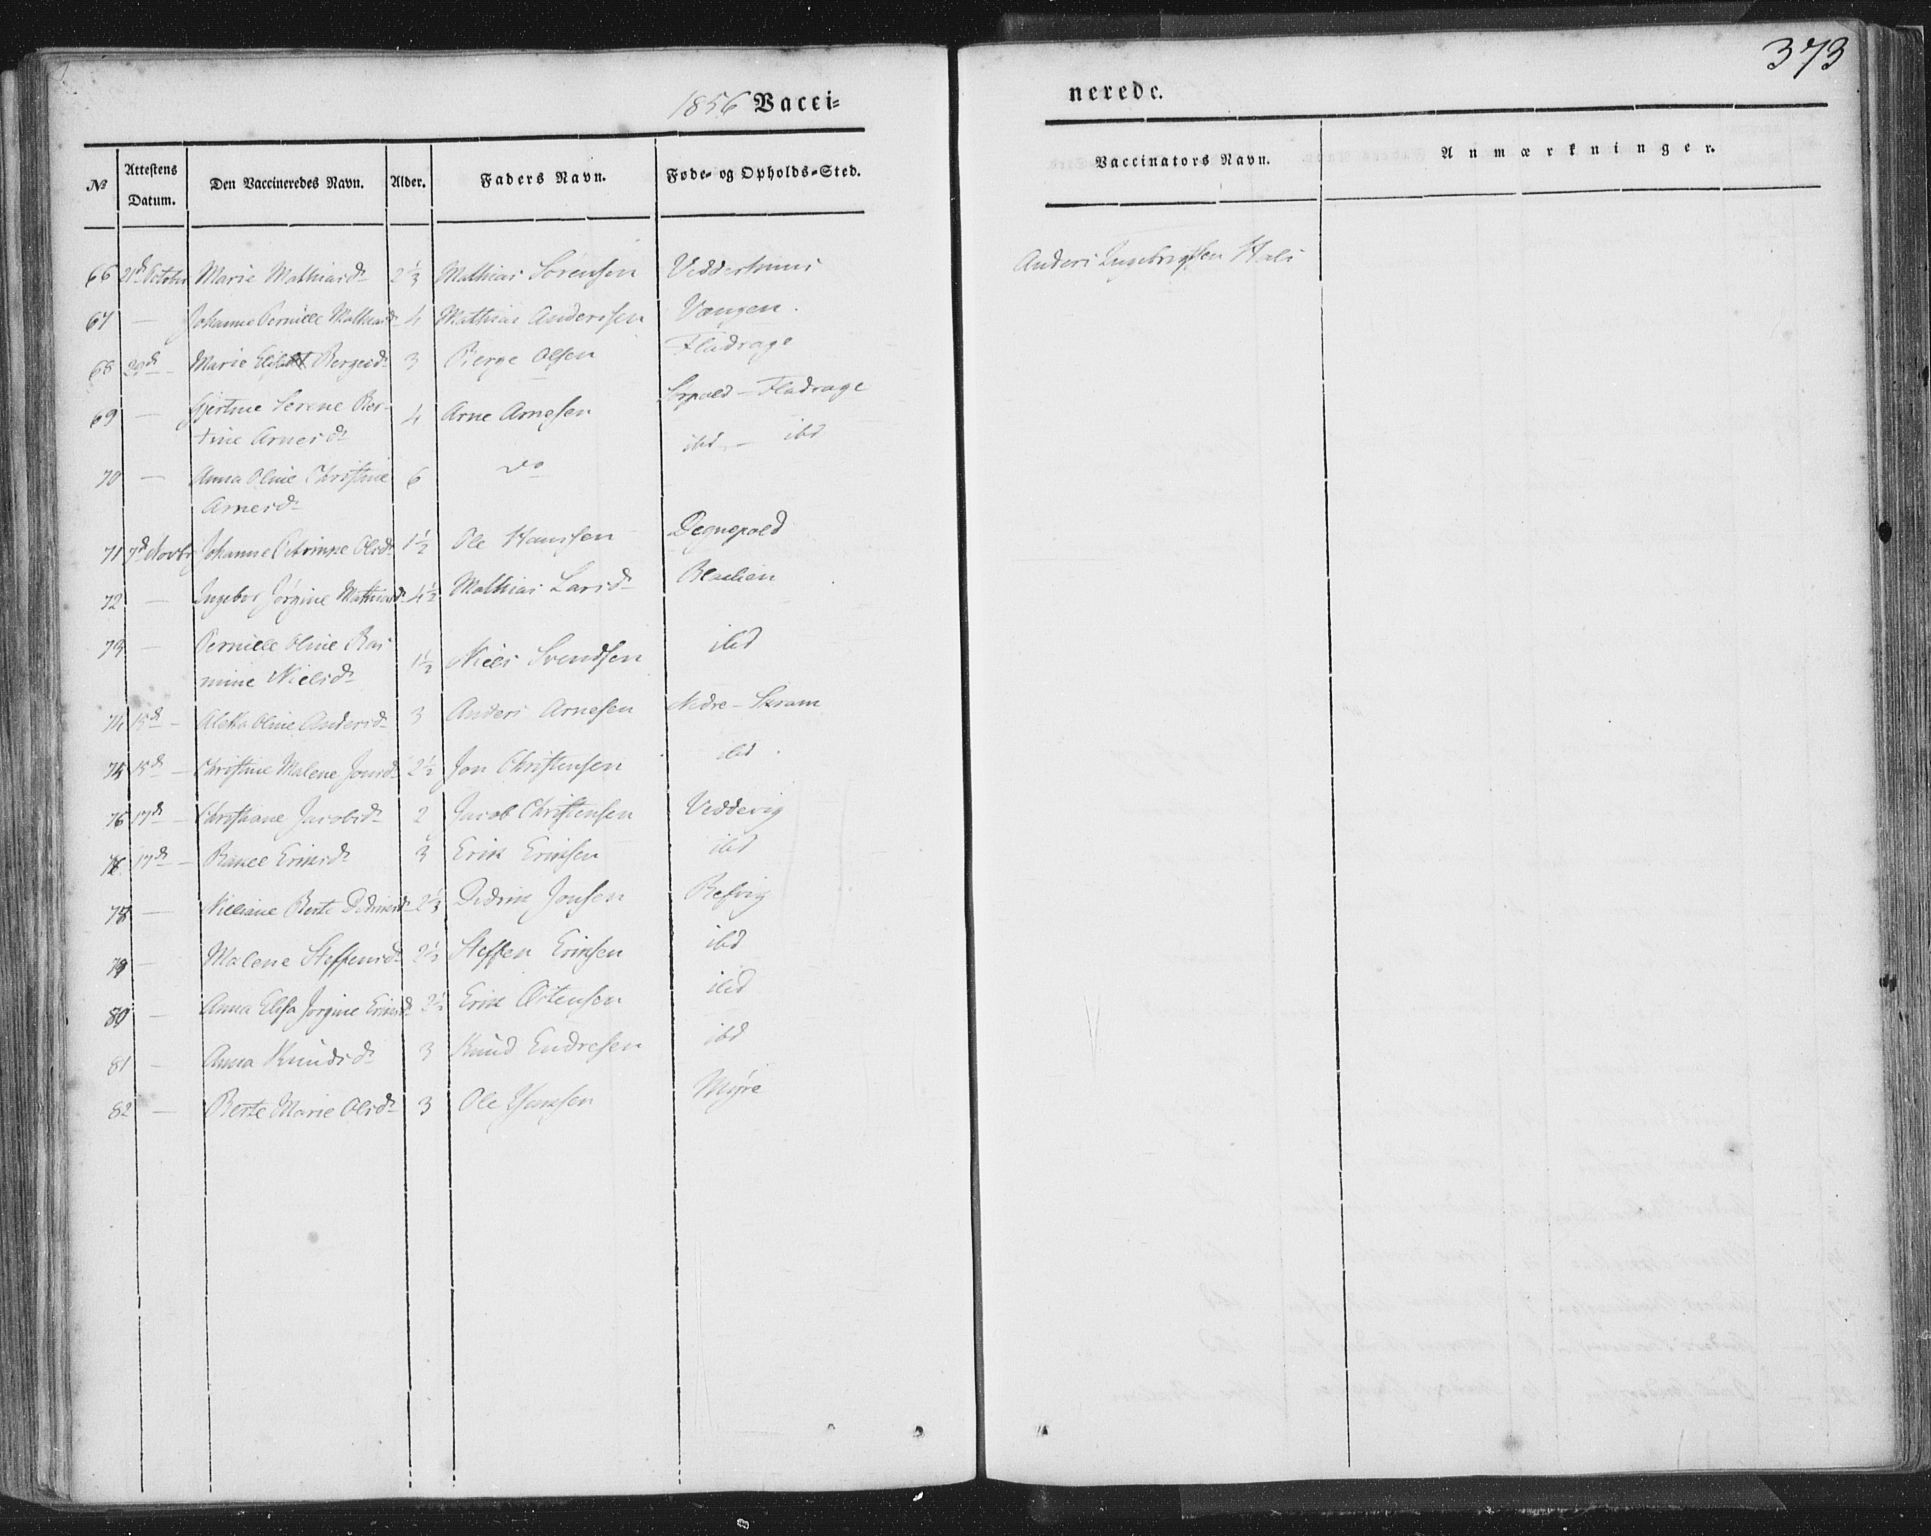 373
1856 Vacci=
nerede.
№ Attestens Datum. Den Vaccineredes Navn. Alder. Faders Navn. Føde- og Opholds-Sted. Vaccinators Navn. Anmærkninger.
66 21de October Marie Mathiasdr 2 1/3 Mathias Sørensen Anders Ingebrigtsen Hals
67 — Johanne Pernille Mathiasdr 4 Mathias Anderssen Vangen.
68 29de — Marie Bergesdr 3 Berge Olsen Fladrage
69 — Gjertine Serene Ber- 4 Arne Arnesen — Fladrage
tine Arnesdr
70 — Anna Oline Christine 6 do ibd — ibd
Arnesdr
71 7de Novbr Johanne Olsdr 1 1/2 Ole Hanssen Degnepold
72 — Ingebor Jørgine Mathiasdr 4 1/2 Mathias Larsdr
73 — Pernille Oline Ras 1 1/2 Niels Svendsen ibd
mine Nielsdr
74 15de — Oline Andersdr 3 Anders Arnesen Nedre – Skram
75 15de — Christine Malene Jonsdr 2 1/2 Jon Christensen ibd.
76 17de — Christiane Jacobsdr 2 Jacob Christensen Veddevig
17de — Eriksdr 3 Erik Eriksen ibd
78 — Berte Didriksdr 2 1/3 Didrik Jonsen Refvig
79 — Malene Steffensdr 2 1/2 Steffen Eriksen ibd
80 — Anna Elisa Jørgine Eriksdr 2 1/2 Erik ibd
81 — Anna Knudsdr 3 Knud Endresen ibd
82 — Berte Marie Olsdr 3 Ole Myre